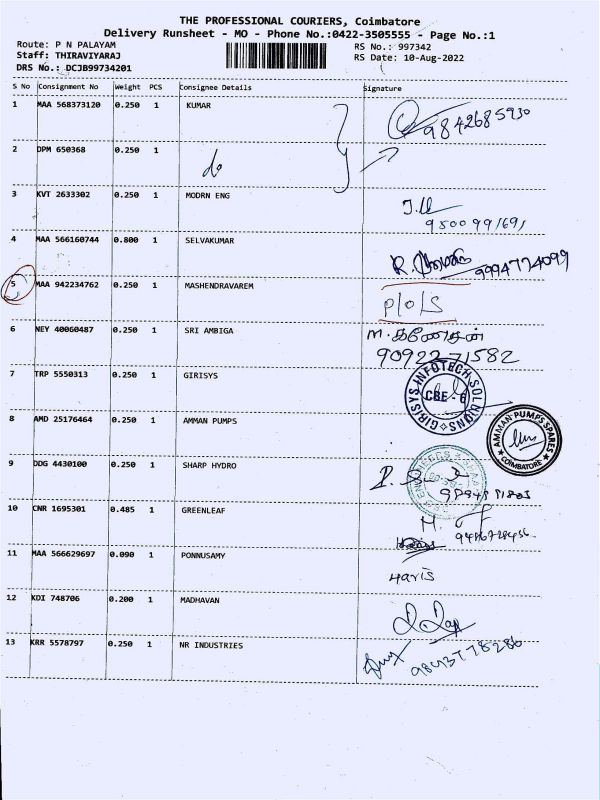 THE PROFESSIONAL COURIERS, Coimbatore
Delivery Runsheet - MO - Phone No.:0422-3505555 - Page No.:1
Route: P N PALAYAM
RS No.: 997342
Staff: THIRAVIYARAJ
RS Date: 10-Aug-2022
DRS No.: DCJB99734201
S No Consignment No Weight PCS Consignee Details Signature
1 MAA 568373120 0.250 1 KUMAR
9842685930
2 DPM 650368 0.250 1
do
3 KVT 2633302 0.250 1 MODRN ENG
9500991691
4 MAA 566160744 0.800 1 SELVAKUMAR
9994774099
5 MAA 942234762 0.250 1 MASHENDRAVAREM
P/O/S
6 NEY 40060487 0.250 1 SRI AMBIGA M. கணேசன்
90922 71582
7 TRP 5550313 0.250 1 GIRISYS
GIRISYS INFOTECH SOLUTIONS
CBE-6
8 AMD 25176464 0.250 1 AMMAN PUMPS
AMMAN PUMPS SPARES
COIMBATORE
9 DDG 4430100 0.250 1 SHARP HYDRO
10 CNR 1695301 0.485 1 GREENLEAF
11 MAA 566629697 0.090 1 PONNUSAMY
Haris
12 KDI 748706 0.200 1 MADHAVAN
13 KRR 5578797 0.250 1 NR INDUSTRIES
9843778286